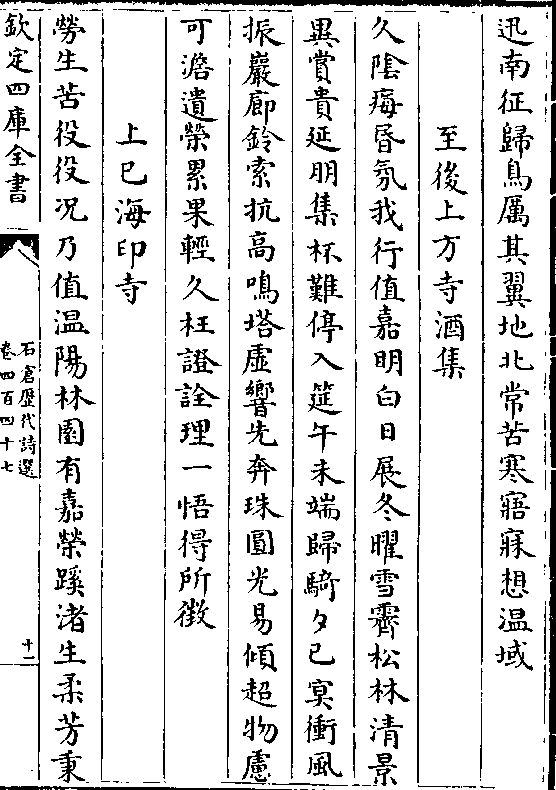 迅南征歸鳥厲其翼地北常苦寒寤寐想温域
至後上方寺酒集
久陰痗昏氛我行值嘉明白日展冬曜雪霽松林清景
異賞貴延朋集杯難停入筵午未端歸騎夕已冥衝風
振巖廊鈴索抗高鳴塔虛響先奔珠圓光易傾超物慮
可澹遺榮累果輕久枉證詮理一悟得所徵
上巳海印寺
勞生苦役役况乃值温陽林園有嘉榮蹊渚生柔芳秉
欽定四庫全書
石倉歷代詩選
卷四百四十七
十一